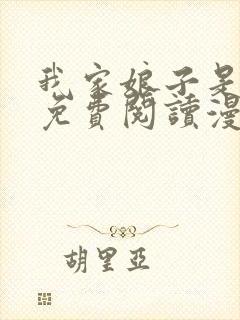 我家娘子是
免費閱讀漫
胡里亞